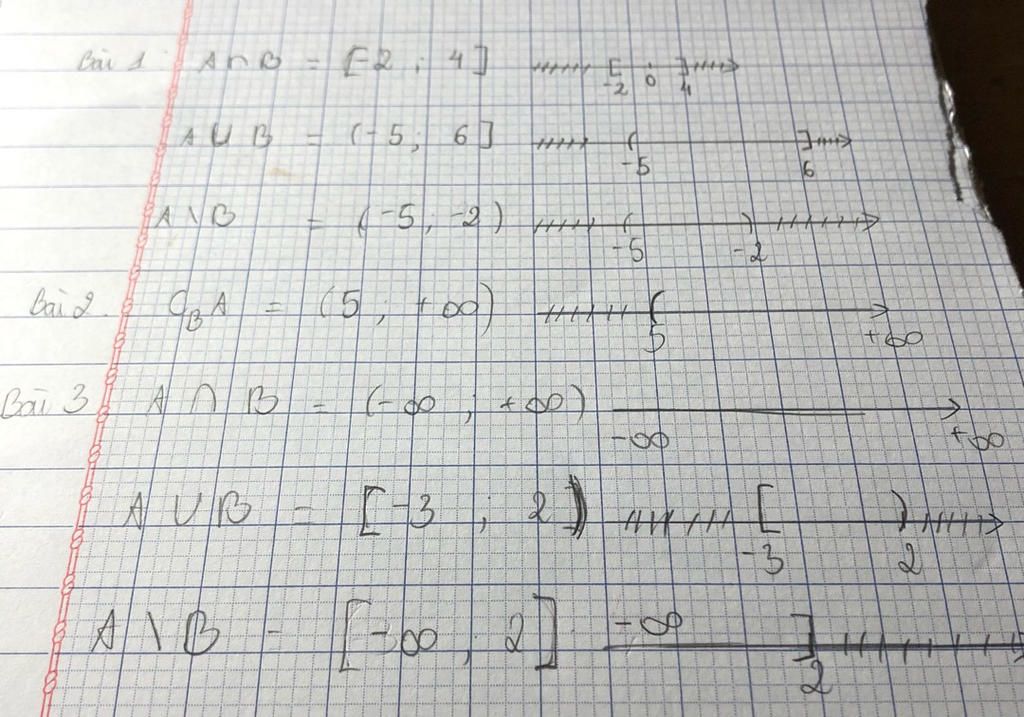 Bài 1 A ∩ B = [-2 ; 4] -2 0 4
A ∪ B = (-5 ; 6] -5 6
A \ B = (-5 ; -2) -5 -2
Bài 2. C_B A = (5 ; +∞) 5 +∞
Bài 3 A ∩ B = (-∞ ; +∞) -∞ +∞
A ∪ B = [-3 ; 2) -3 2
A \ B = [-∞ ; 2] -∞ 2